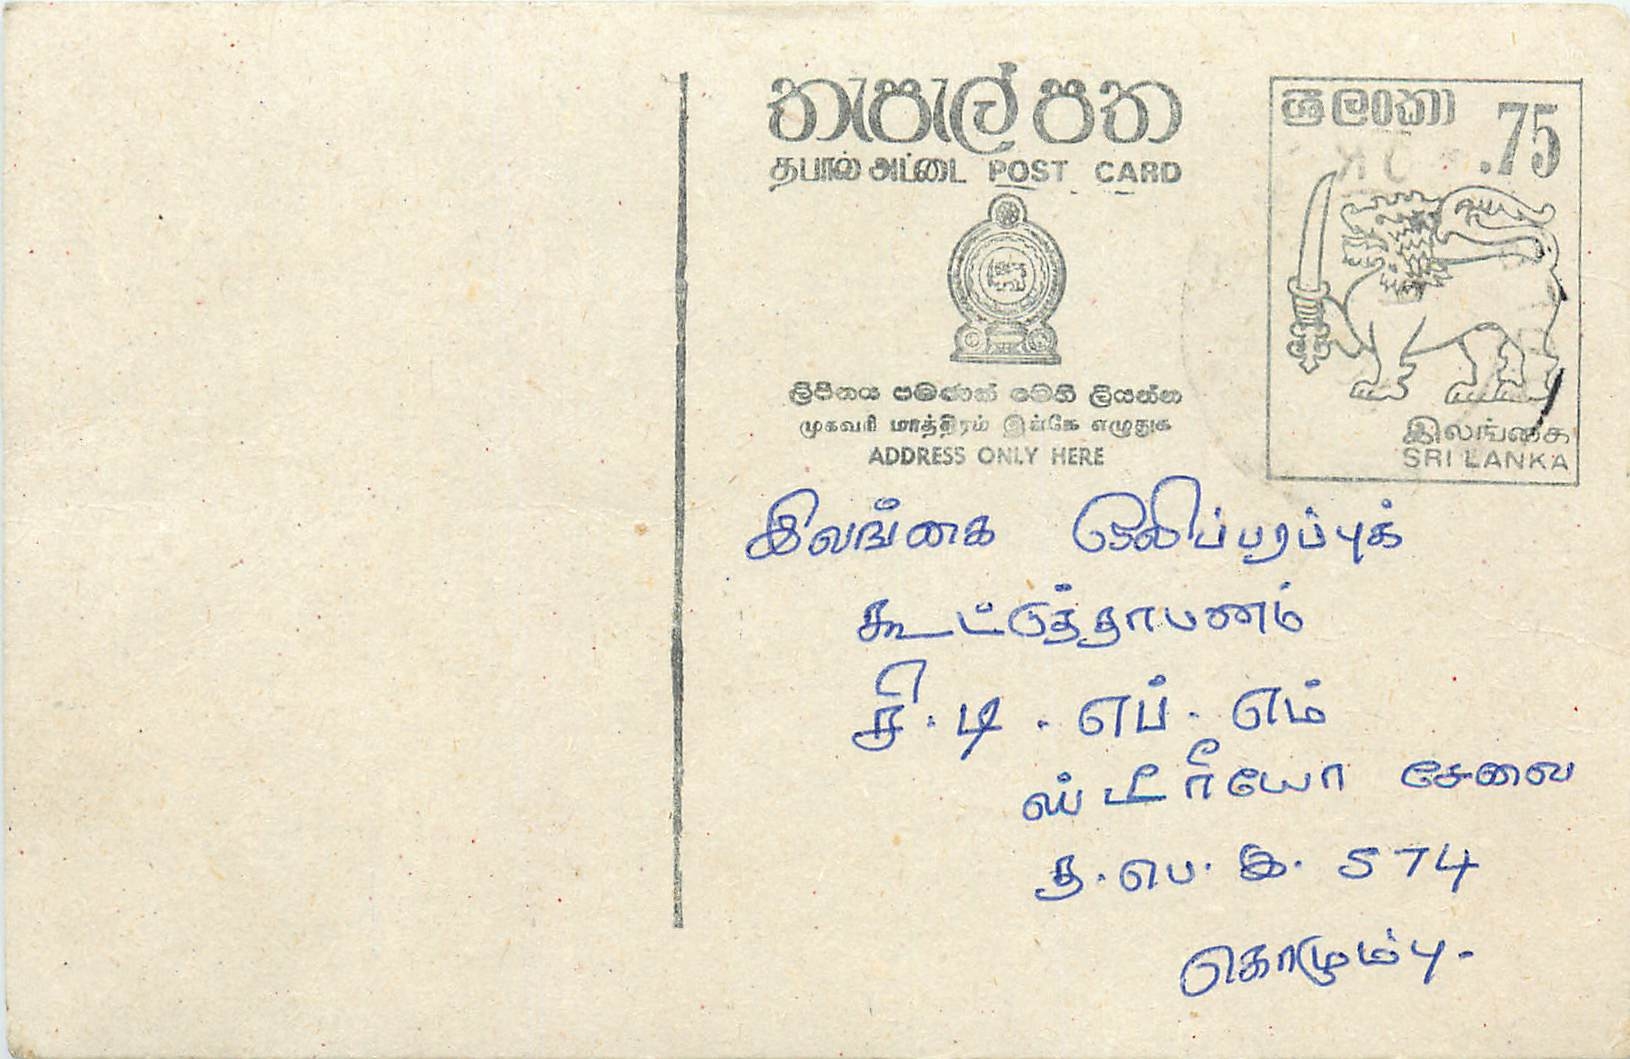 තැපැල් පත
தபால் அட்டை POST CARD
ශ්‍රී ලංකා .75
ලිපිනය පමණක් මෙහි ලියන්න
முகவரி மாத்திரம் இங்கே எழுதுக
ADDRESS ONLY HERE
இலங்கை
SRI LANKA
இலங்கை ஒலிபரப்புக்
கூட்டுத்தாபனம்
சி.டி.எப்.எம்
ஸ்டீரியோ சேவை
த.பெ.இ. 574
கொழும்பு.